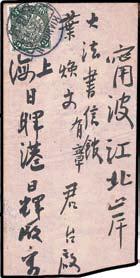 甯波江北岸
大法書信館
葉煥文有章 君台啟
上海日暉港日暉收寄